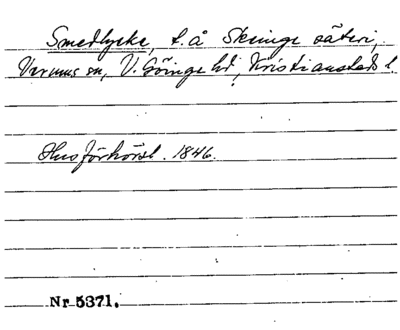 Smedlycke, t. å Skeinge säteri,
Verums sn, V. Göinge hd, Kristianstads l.
Husförhörsl. 1846.
Nr 5371.